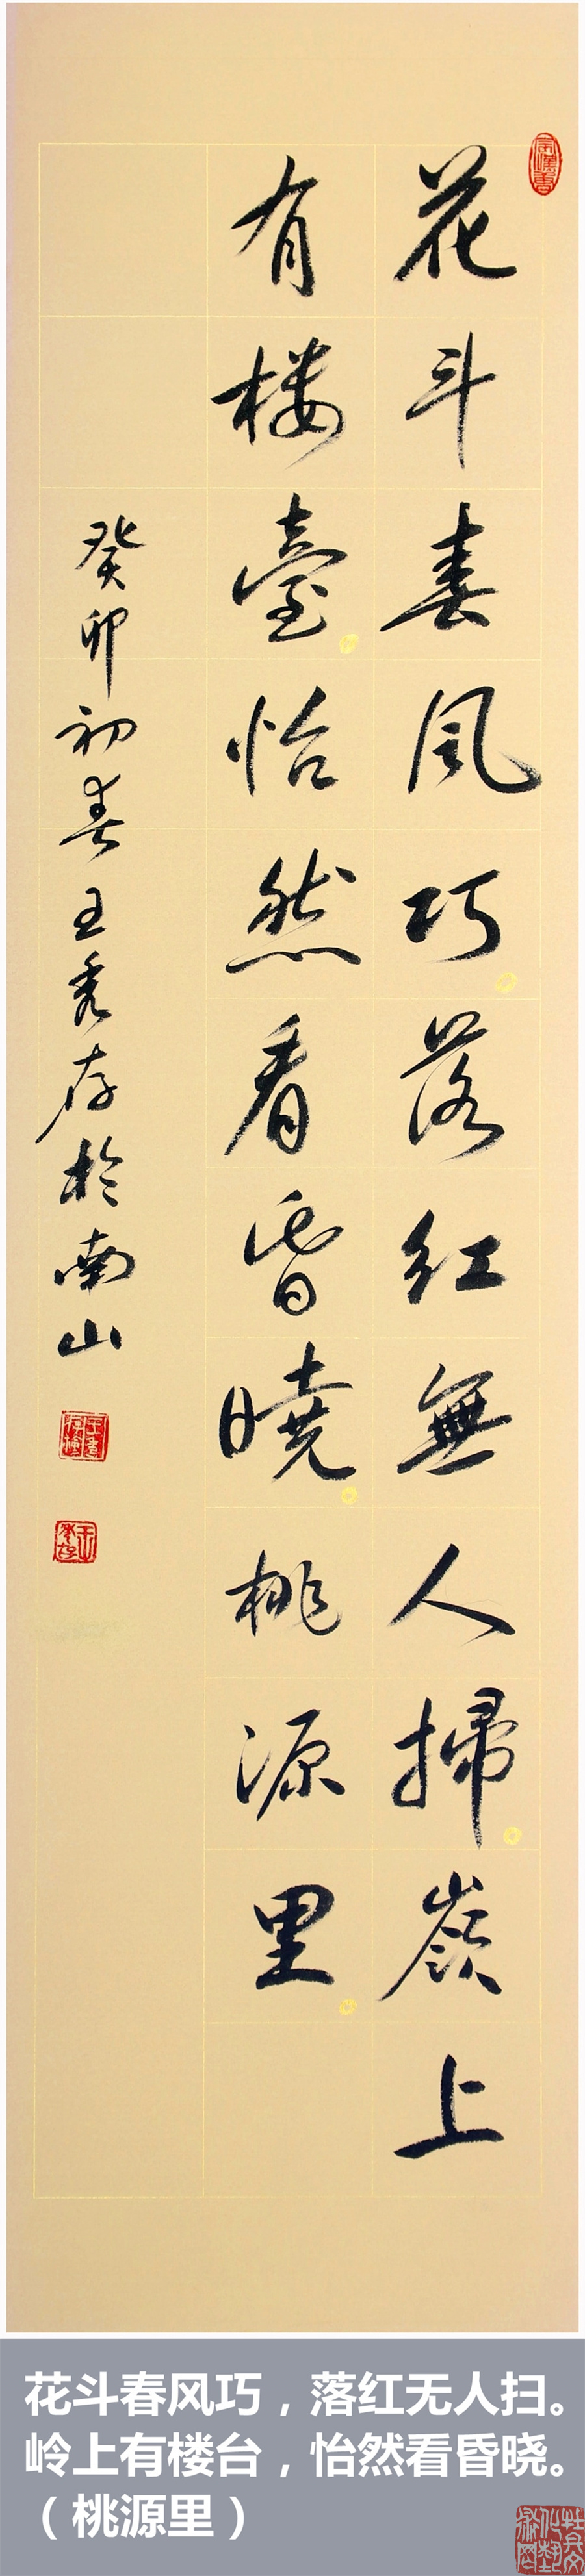 花斗春风巧落红無人掃嶺上
有楼臺怡然看昏曉桃源里
癸卯初春王秀存於南山
花斗春风巧，落红无人扫。
岭上有楼台，怡然看昏晓。
（桃源里）